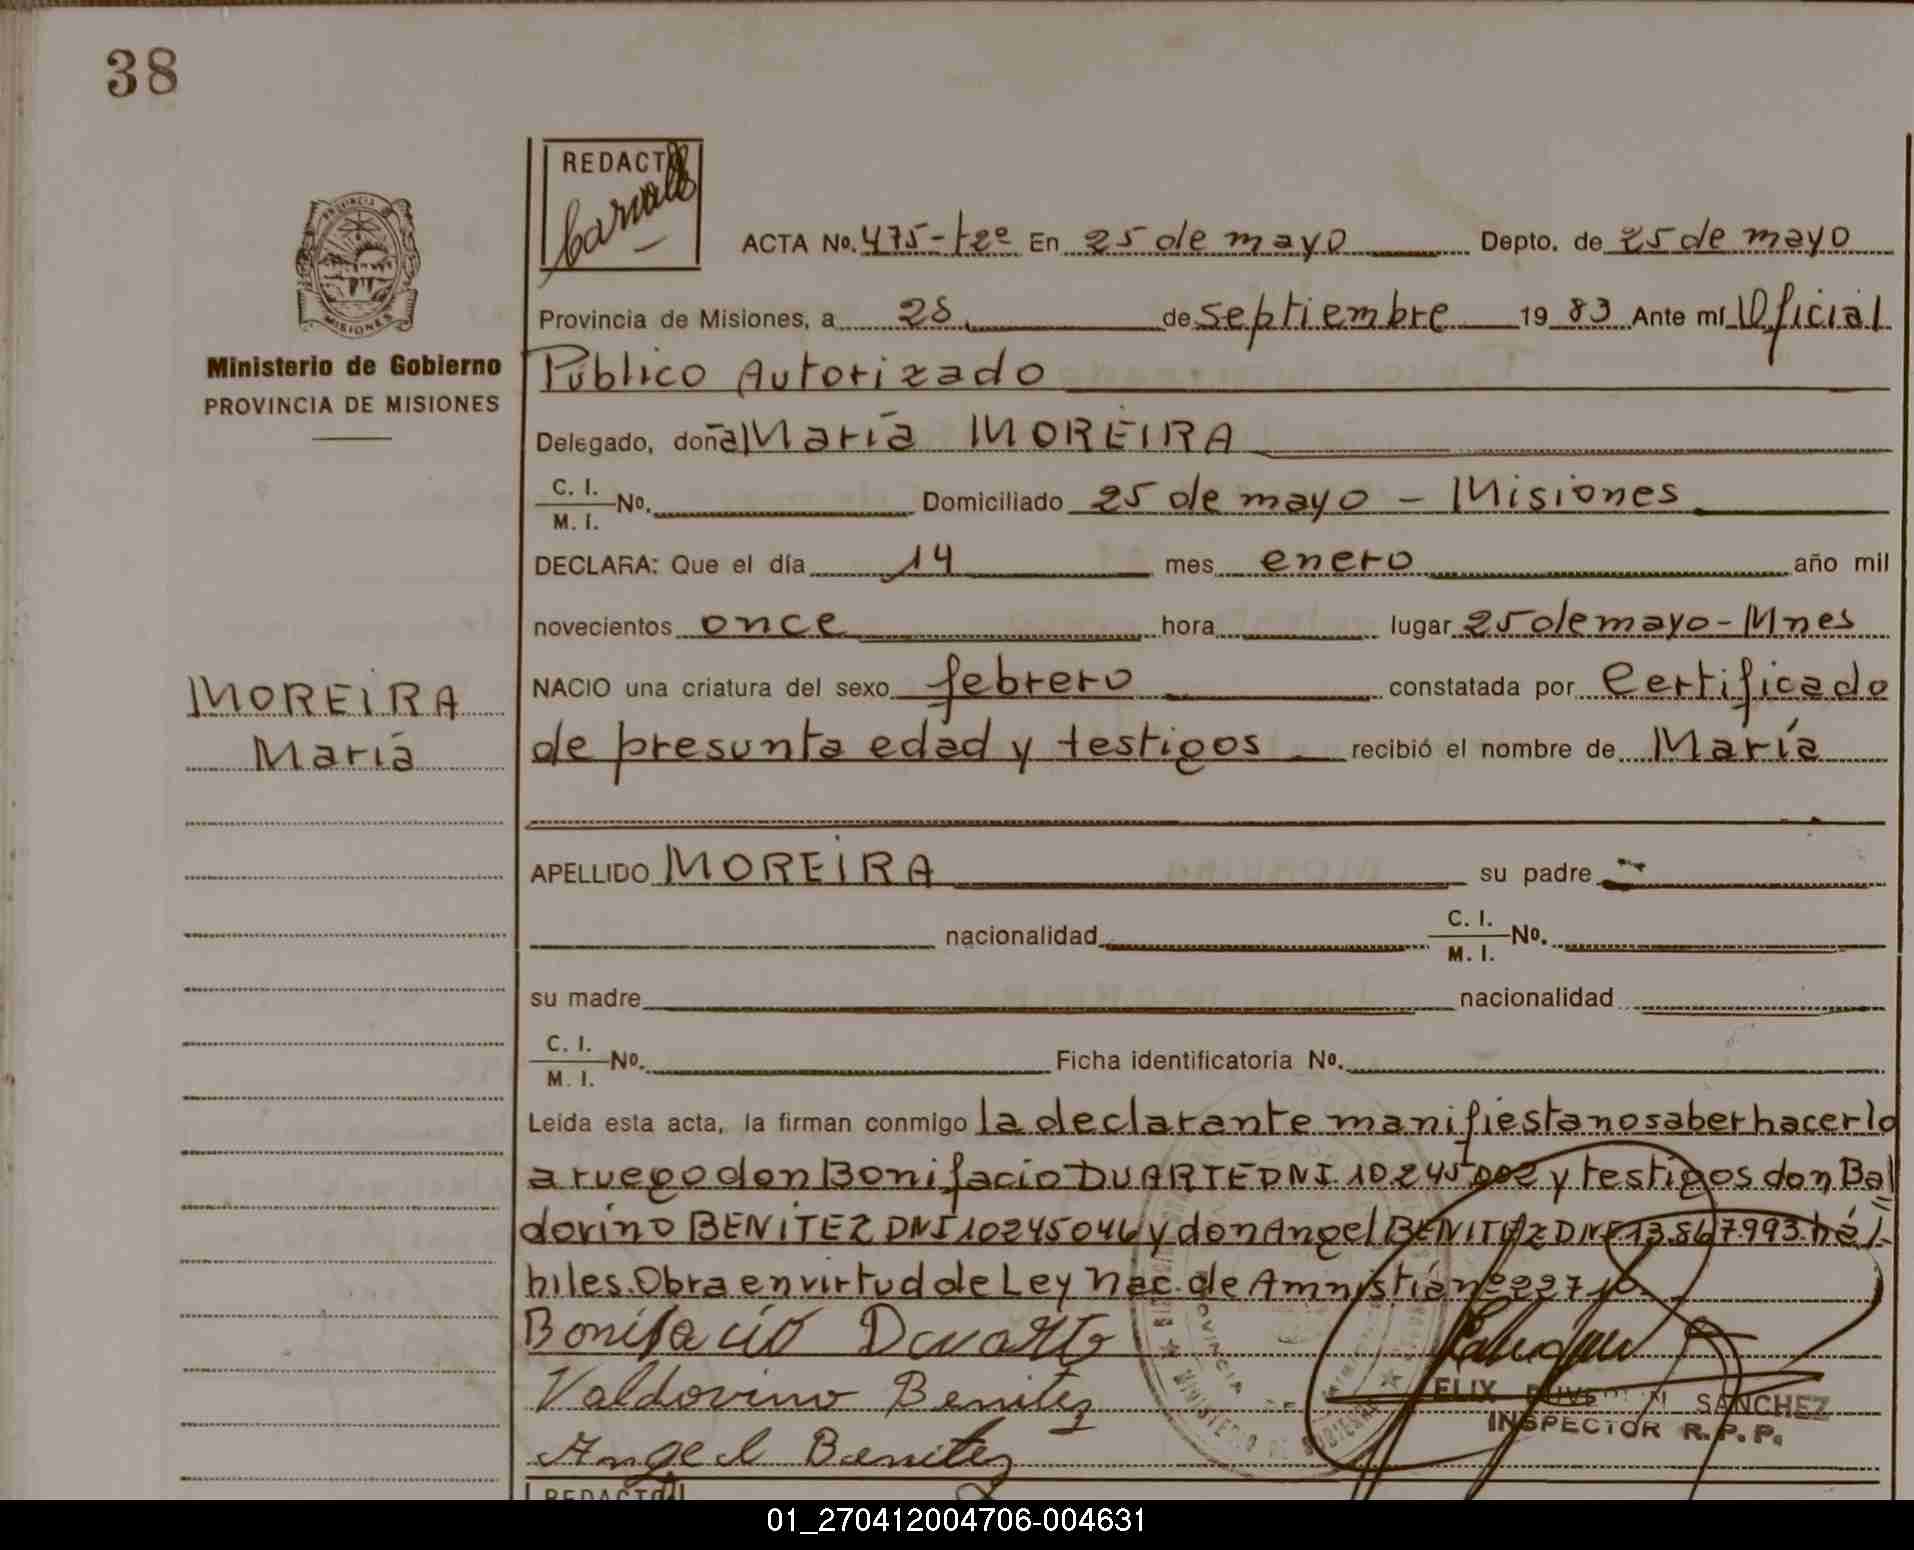 38
REDACTÓ
PROVINCIA
MISIONES
ACTA No. 475-tzº En 25 de mayo Depto. de 25 de mayo
Provincia de Misiones, a 28 de septiembre 19 83 Ante mí Oficial
Ministerio de Gobierno
PROVINCIA DE MISIONES
Público Autorizado
Delegado, doña María MOREIRA
C. I.
M. I. No. Domiciliado 25 de mayo - Misiones
DECLARA: Que el día 14 mes enero año mil
novecientos once hora lugar 25 de mayo - Mnes
NACIO una criatura del sexo febrero constatada por Certificado
MOREIRA
María
de presunta edad y testigos recibió el nombre de María
APELLIDO MOREIRA su padre
nacionalidad C. I.
M. I. No.
su madre nacionalidad
C. I.
M. I. No. Ficha identificatoria No.
Leída esta acta, la firman conmigo la declarante manifiesta no saber hacerlo
a ruego don Bonifacio DUARTE DNI 10245002 y testigos don Bal
dovino BENITEZ DNI 10245046 y don Angel BENITEZ DNI 13.867993 há
biles. Obra en virtud de Ley Nac. de Amnistía nº 22710.
Bonifacio Duarte
Valdovino Benitez
Angel Benitez
FELIX SANCHEZ
INSPECTOR R. P. P.
MINISTERIO DE GOBIERNO
PROVINCIA DE
REDACTÓ
01_270412004706-004631